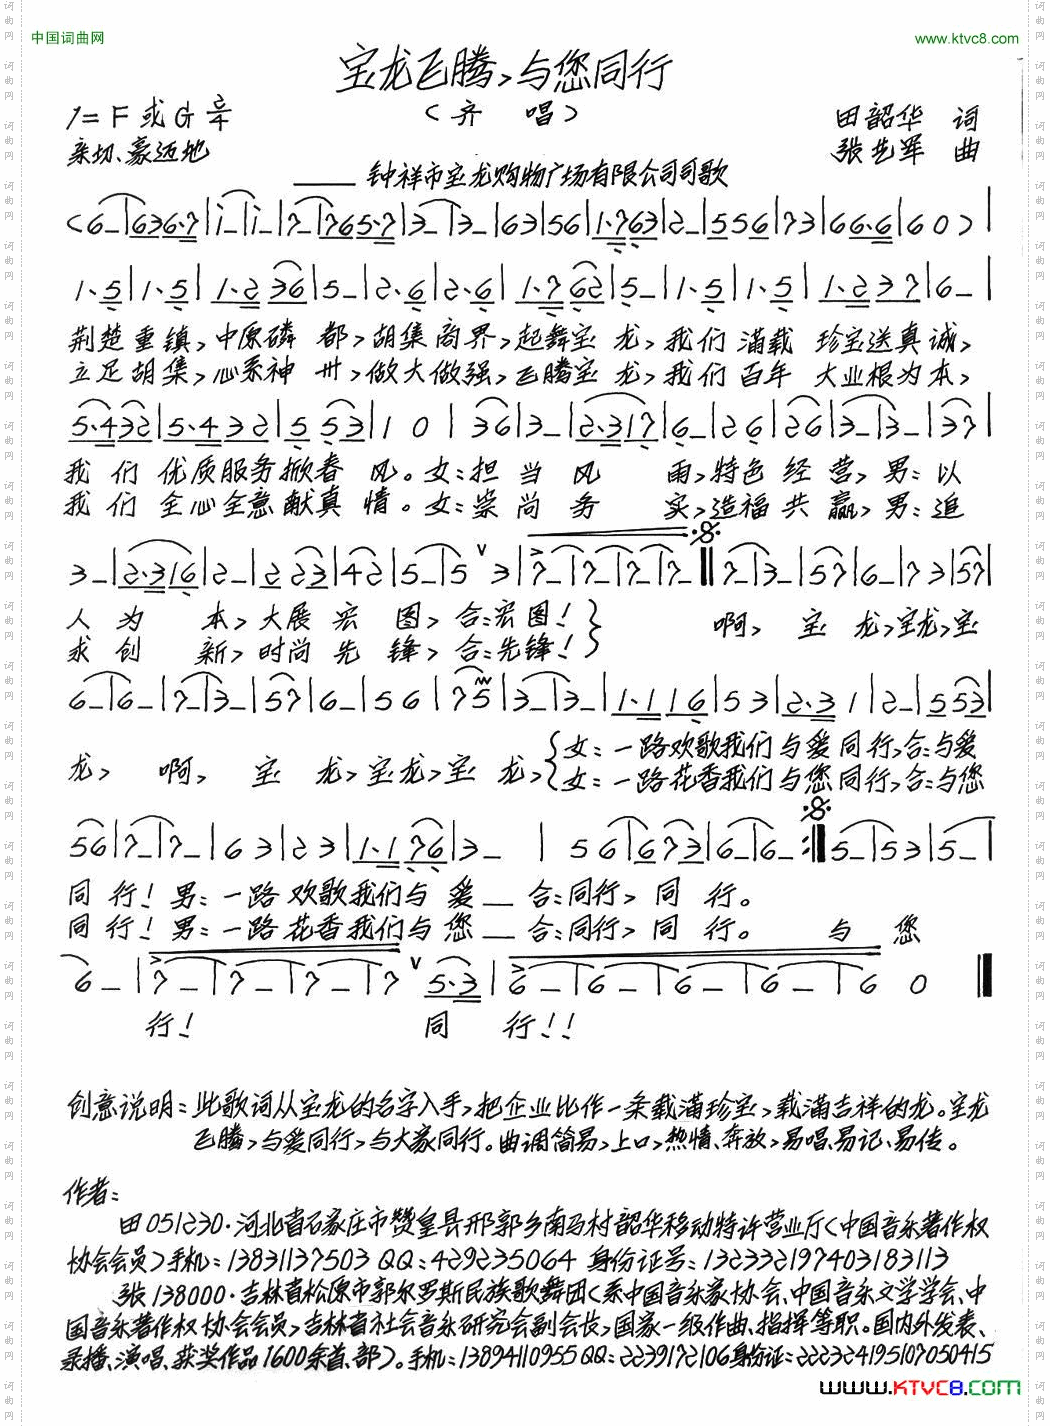 中国词曲网
www.ktvc8.com
宝龙飞腾，与您同行
1=F或G 2/4
（齐 唱）
田韶华 词
亲切、豪迈地
张艺军 曲
——钟祥市宝龙购物广场有限公司司歌
荆楚重镇，中原磷都，胡集商界，起舞宝龙，我们满载珍宝送真诚，
立足胡集，心系神州，做大做强，飞腾宝龙，我们百年大业根为本，
我们优质服务掀春风。女：担当风雨，特色经营，男：以
我们全心全意献真情。女：崇尚务实，造福共赢，男：追
人为本，大展宏图，合：宏图！ 啊，宝龙，宝龙，宝
求创新，时尚先锋，合：先锋！
女：一路欢歌我们与爱同行，合：与爱
龙，啊，宝龙，宝龙，宝龙，
女：一路花香我们与您同行，合：与您
同行！男：一路欢歌我们与爱——合：同行，同行。
同行！男：一路花香我们与您——合：同行，同行。 与您
行！ 同行！！
创意说明：此歌词从宝龙的名字入手，把企业比作一条载满珍宝，载满吉祥的龙。宝龙
飞腾，与爱同行，与大家同行。曲调简易，上口，热情、奔放，易唱、易记、易传。
作者：
田051230·河北省石家庄市赞皇县邢郭乡南马村韶华移动特许营业厅（中国音乐著作权
协会会员）手机：13831137503 QQ：429235064 身份证号：132332197403183113
张138000·吉林省松原市郭尔罗斯民族歌舞团（系中国音乐家协会、中国音乐文学学会、中
国音乐著作权协会会员，吉林省社会音乐研究会副会长，国家一级作曲、指挥等职。国内外发表、
录播、演唱、获奖作品1600余首、部）。手机：13894110955 QQ：2239172106 身份证：222324195107050415
www.KTVC8.COM